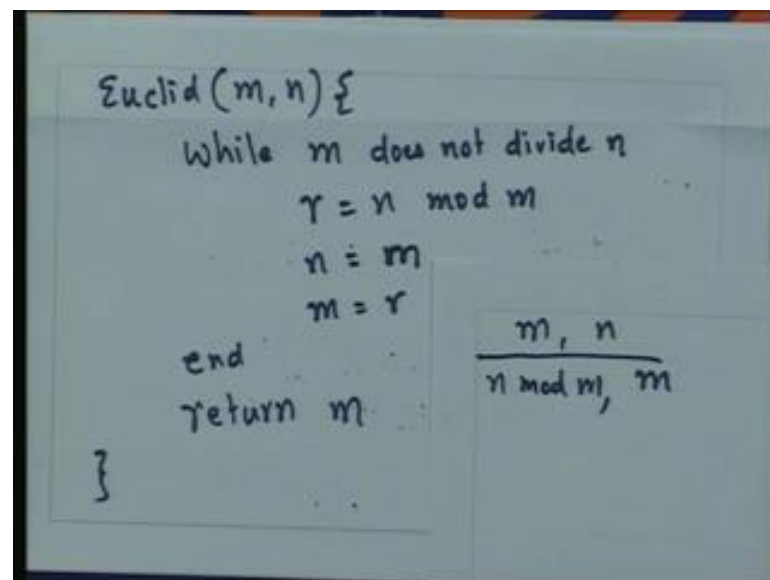 Euclid (m, n) {
While m does not divide n
r = n mod m
n = m
m = r
end
return m
}
m, n
n mod m, m